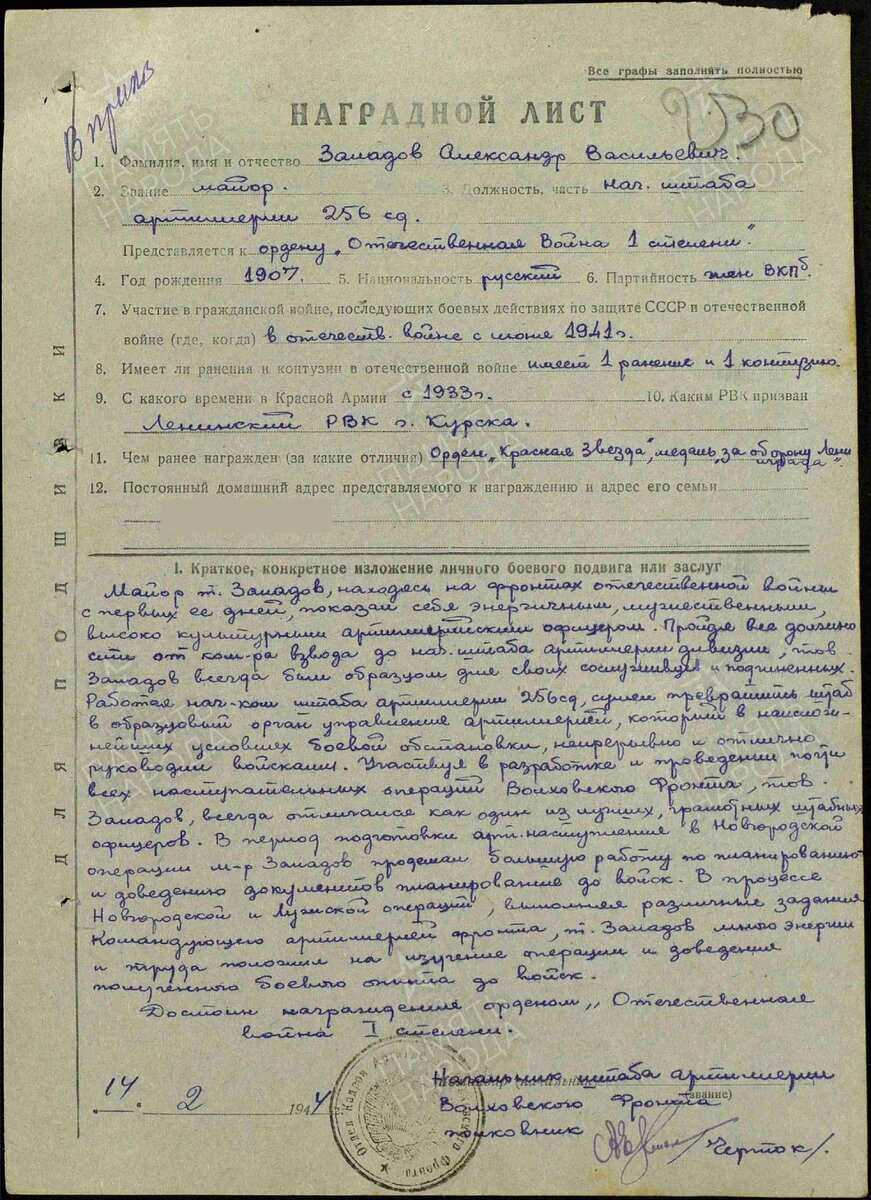 В прика
Все графы заполнять полностью
230
НАГРАДНОЙ ЛИСТ
1. Фамилия, имя и отчество Западов Александр Васильевич.
2. Звание майор. 3. Должность, часть нач. штаба
артиллерии 256 сд.
Представляется к ордену „Отечественная Война 1 степени".
4. Год рождения 1907. 5. Национальность русский 6. Партийность член ВКПб.
7. Участие в гражданской войне, последующих боевых действиях по защите СССР и отечественной
войне (где, когда) в отечеств. войне с июня 1941г.
8. Имеет ли ранения и контузии в отечественной войне имеет 1 ранение и 1 контузию.
9. С какого времени в Красной Армии с 1933г. 10. Каким РВК призван
Ленинский РВК г. Курска.
11. Чем ранее награжден (за какие отличия) Орден „Красная Звезда", медаль „за оборону Лени
нграда".
12. Постоянный домашний адрес представляемого к награждению и адрес его семьи
ДЛЯ ПОДШИВКИ
I. Краткое, конкретное изложение личного боевого подвига или заслуг
Майор т. Западов, находясь на фронтах отечественной войны
с первых ее дней, показал себя энергичным, мужественным,
высоко культурным артиллерийским офицером. Пройдя все должно
сти от ком-ра взвода до нач. штаба артиллерии дивизии, тов.
Западов всегда был образцом для своих сослуживцев и подчиненных.
Работая нач-ком штаба артиллерии 256сд, сумел превратить штаб
в образцовый орган управления артиллерией, который в наислож-
нейших условиях боевой обстановки, непрерывно и отлично
руководил войсками. Участвуя в разработке и проведении почти
всех наступательных операций Волховского Фронта, тов.
Западов, всегда отличался как один из лучших, грамотных штабных
офицеров. В период подготовки арт-наступления в Новгородской
операции м-р Западов проделал большую работу по планированию
и доведению документов планирования до войск. В процессе
Новгородской и Лужской операций, выполняя различные задания
Командующего артиллерией фронта, т. Западов много энергии
и труда положил на изучение операции и доведения
полученного боевого опыта до войск.
Достоин награждения орденом „Отечественная
война I степени.
Начальник штаба артиллерии
14. 2 1944
(звание)
Волховского Фронта
полковник /Черток/.
Отдел Кадров Фронта
ПАМЯТЬ НАРОДА